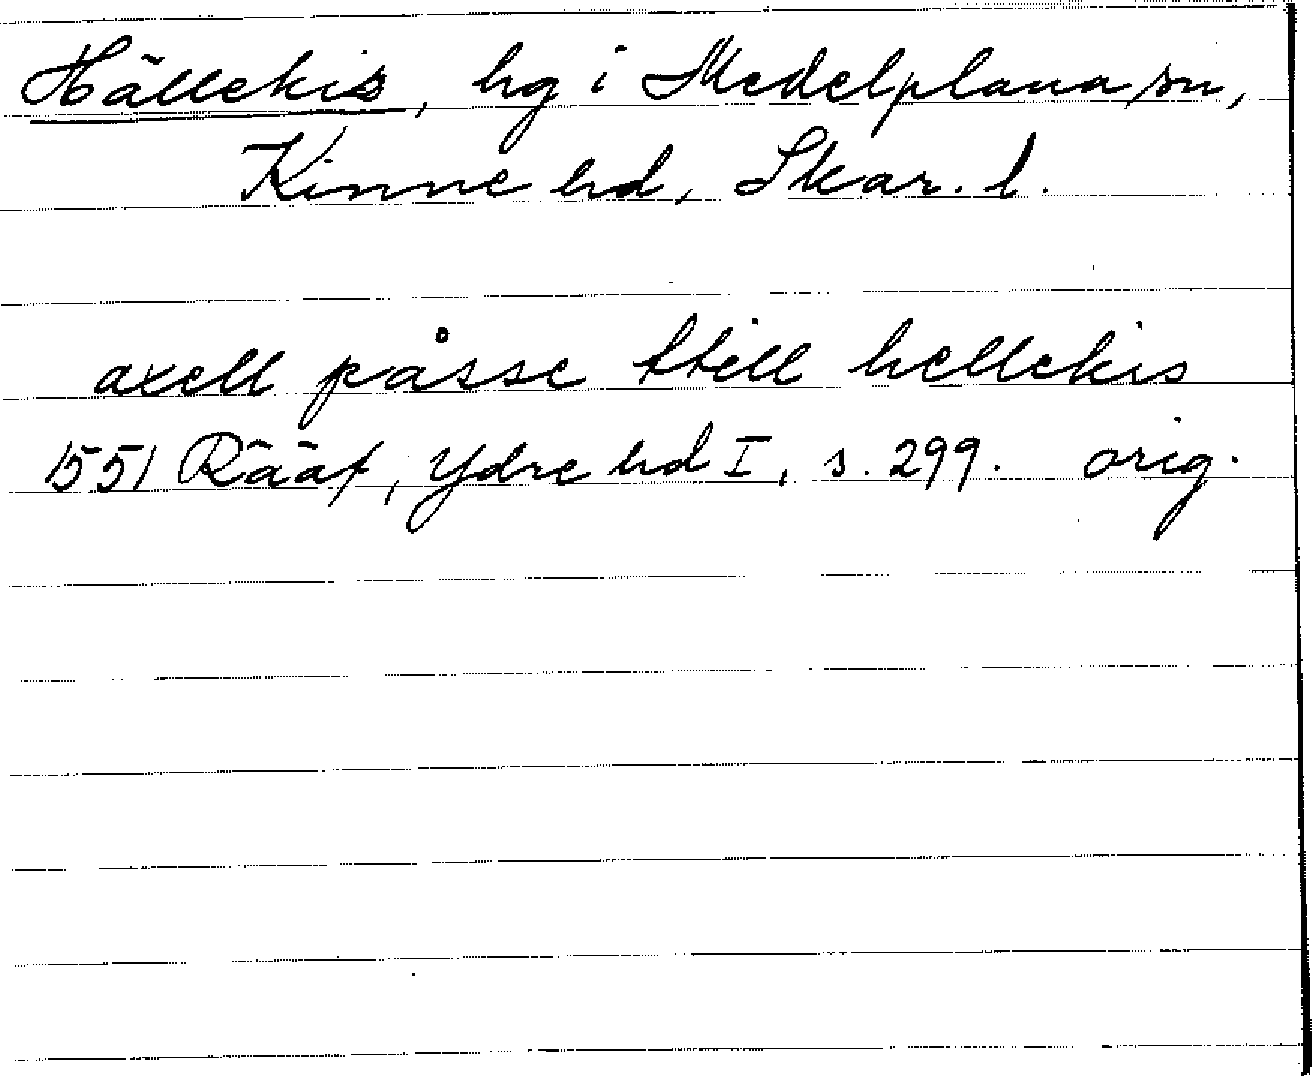 Hällekis, hg i Medelplana sn,
Kinne hd, Skar. l.
axell påsse ttill hellekis
1551 Rääf, Ydre hd I, s. 299. orig.